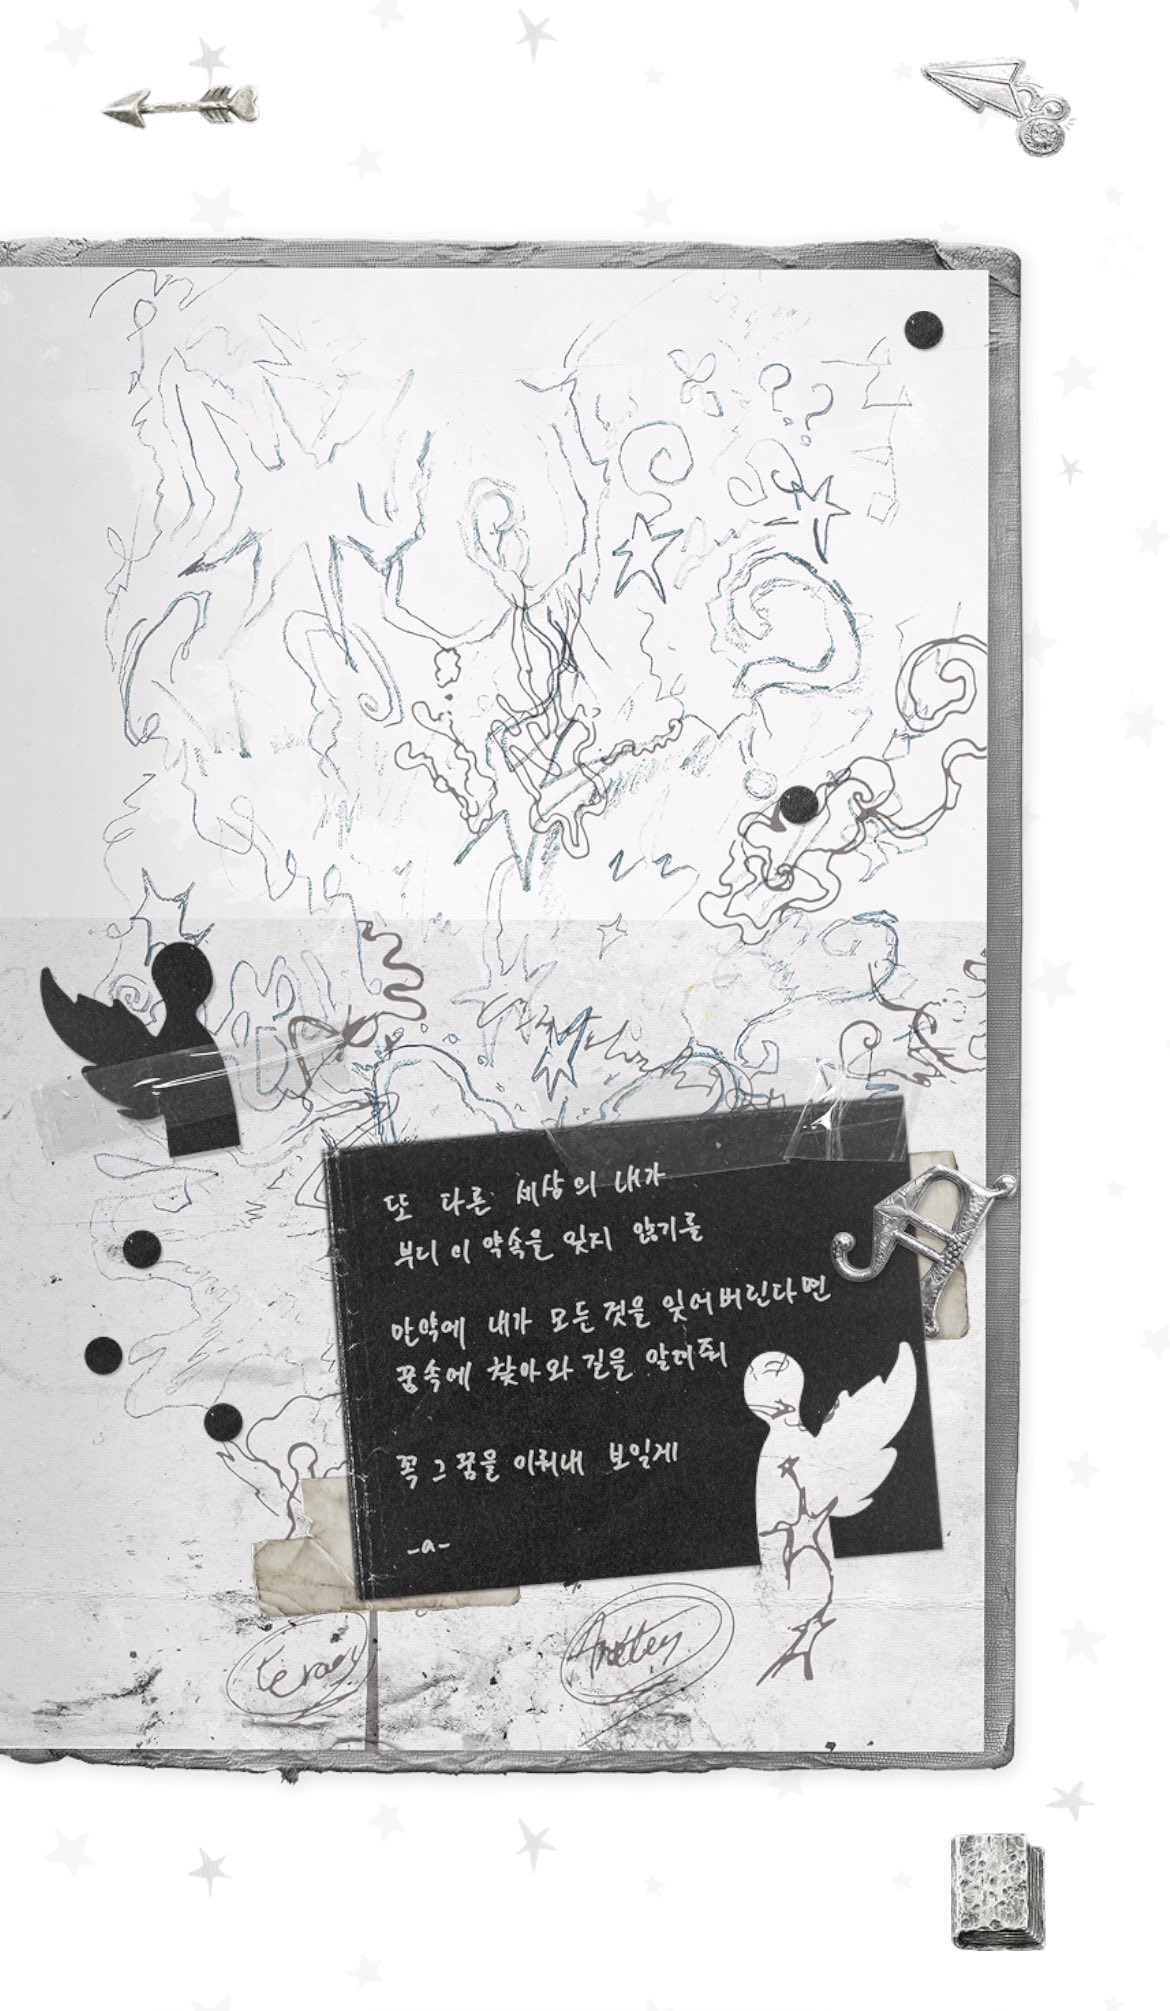 또 다른 세상의 내가
부디 이 약속을 잊지 않기를
만약에 내가 모든 것을 잊어버린다면
꿈속에 찾아와 길을 알려줘
꼭 그 꿈을 이뤄내 보일게
-a-
??
A